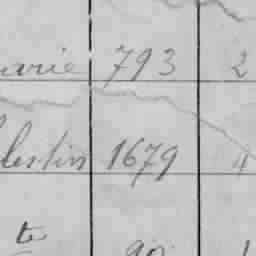 arie 793 2
lestin 1679 4
te 90 1